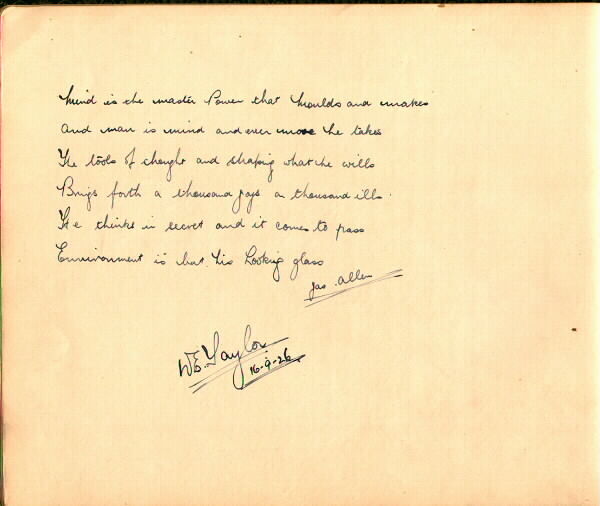 Mind is the master Power that Moulds and makes
And man is mind and ever more he takes
The tools of thought and shaping what he wills
Brings forth a thousand joys a thousand ills.
He thinks in secret and it comes to pass
Environment is but his Looking glass
Jas. Allen
W.E. Taylor
16-9-26.